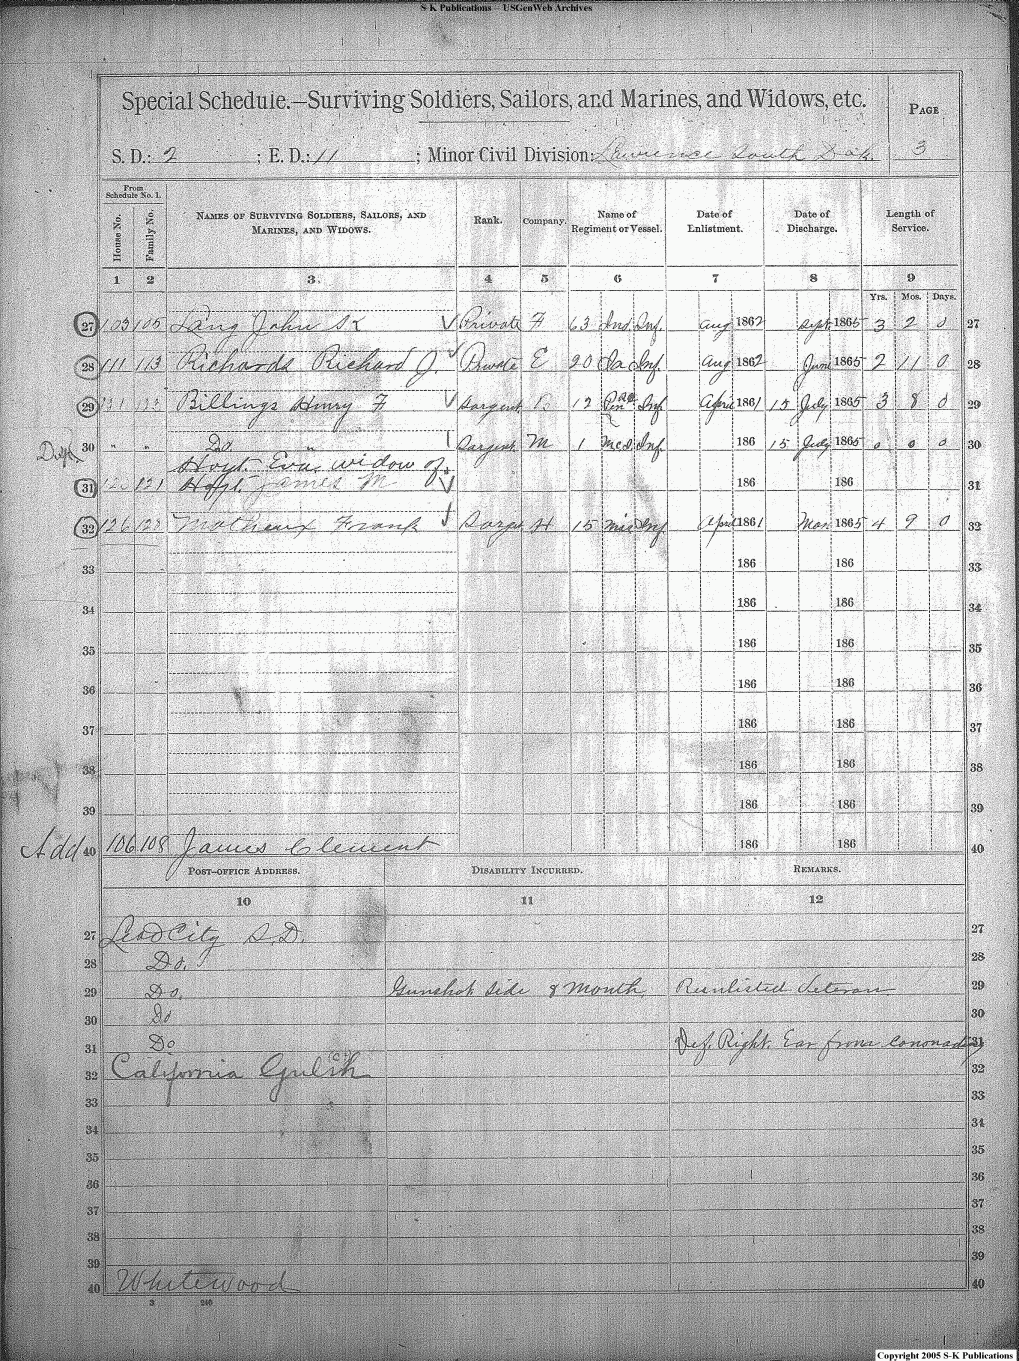 S-K Publications - USGenWeb Archives
Special Schedule.—Surviving Soldiers, Sailors, and Marines, and Widows, etc.
PAGE
S. D.: 2 ; E. D.: 11 ; Minor Civil Division: Lawrence South Dak. 3
From Schedule No. 1.
House No. Family No. NAMES OF SURVIVING SOLDIERS, SAILORS, AND MARINES, AND WIDOWS. Rank. Company. Name of Regiment or Vessel. Date of Enlistment. Date of Discharge. Length of Service.
1 2 3. 4 5 6 7 8 9
Yrs. Mos. Days.
27 103 105 Lang John Private F 63 Ind. Inf. Aug 1862 Sept 1865 3 2 0 27
28 111 113 Richards Richard J. Private E 20 Pa Inf. Aug 1862 June 1865 2 11 0 28
29 Billings Henry F Sargent 12 Inf April 1861 15 July 1865 3 8 0 29
30 " " Do. " Sargent M 1 Inf 186 15 July 1865 0 0 0 30
Hoyt. Eva. widow of
31 121 Hoyt. James M 186 186 31
32 126 Frank H 15 Inf. April 1861 Mar. 1865 4 9 0 32
33 186 186 33
34 186 186 34
35 186 186 35
36 186 186 36
37 186 186 37
38 186 186 38
39 186 186 39
Add 40 106 108 James Clement 186 186 40
POST-OFFICE ADDRESS. DISABILITY INCURRED. REMARKS.
10 11 12
27 Lead City S.D. 27
28 Do. 28
29 Do. Gunshot side 8 month Reinlisted Veteran 29
30 Do 30
31 Do Def. Right. Ear from cononading 31
32 California Gulch 32
33 33
34 34
35 35
36 36
37 37
38 38
39 39
40 Whitewood 40
3 240
Copyright 2005 S-K Publications